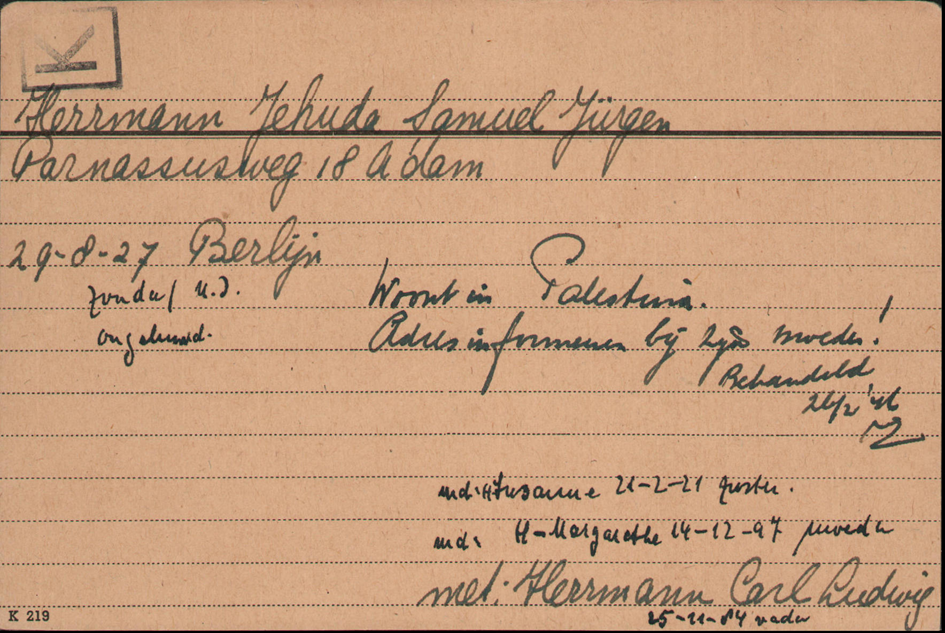 K
Herrmann Jehuda Samuel Jürgen
Parnassusweg 18 A'dam
29-8-27 Berlijn
Woont in Palestina.
Adres informeren bij zijn moeder!
Behandeld
26/2 '46
Susanne 21-2-21 zuster.
H-Margarethe 14-12-97 moeder
met: Herrmann Carl Ludwig
vader
K 219